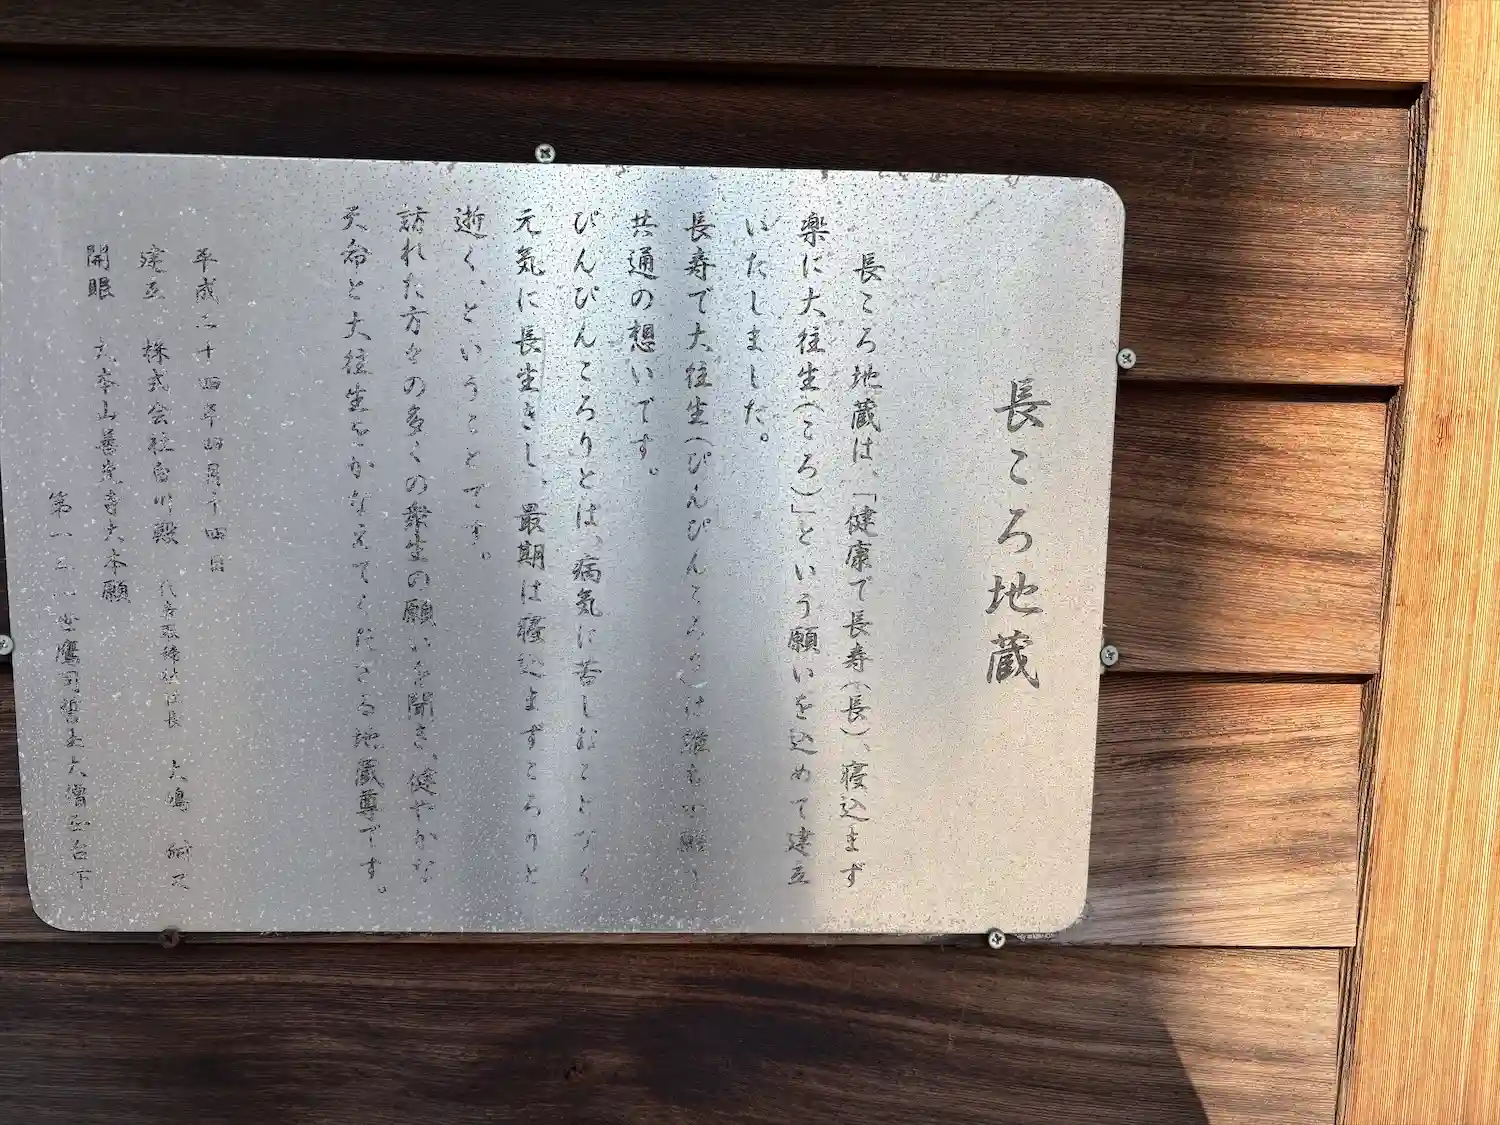 長ころ地蔵
長ころ地蔵は、「健康で長寿(長)、寝込まず
楽に大往生(ころ)」という願いを込めて建立
いたしました。
長寿で大往生(ぴんぴんころり)は誰もが願う
共通の想いです。
ぴんぴんころりとは、病気に苦しむことなく
元気に長生きし、最期は寝込まずころりと
逝く、ということです。
訪れた方々の多くの衆生の願いを聞き、健やかな
天命と大往生をかなえてくださる地蔵尊です。
平成二十四年四月十四日
建立 株式会社白川殿 代表取締役社長 大嶋
開眼 大本山善光寺大本願
第一二一世鷹司誓玉大僧正台下